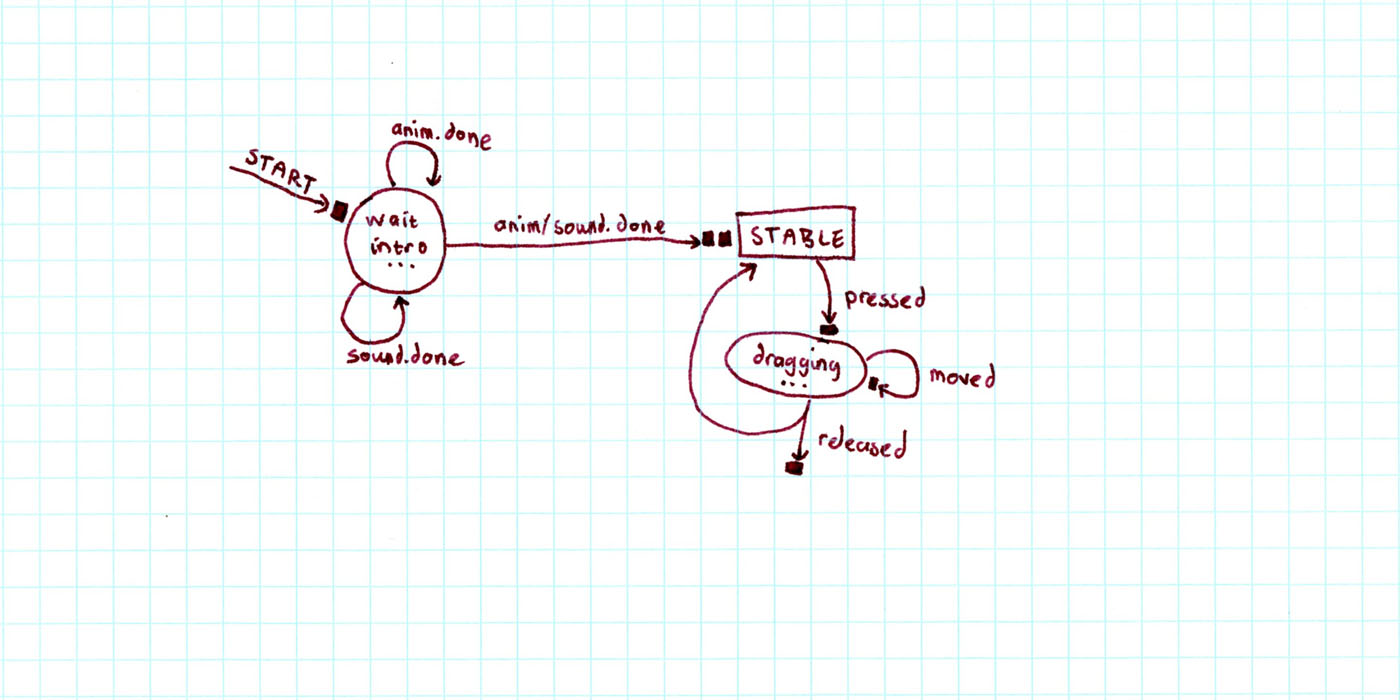 anim.done
START
wait
intro
...
anim/sound.done
STABLE
sound.done
pressed
dragging
...
moved
released